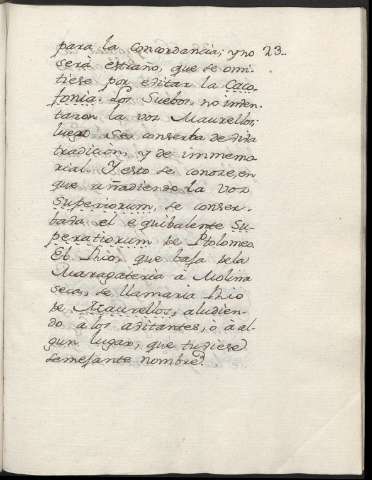 para la Concordancia; y no 23..
será estraño, que se omi-
tiese por evitar la Caco-
fonia. Los Suebos no inven-
taron la voz Maurellos;
luego se conserba de
tradicion, y de immemo
rial. Y esto se conoce, en
que añadiendo la voz
Superiorum, se conser-
baba el equibalente Su-
peratiorum de Ptolomeo.
El Rio, que baja de la
Maragateria á Molina
seca, se llamaria Rio
de Maurellos, aludien-
do a los abitantes, ó á al-
gun lugar, que tubiese
semejante nombre.